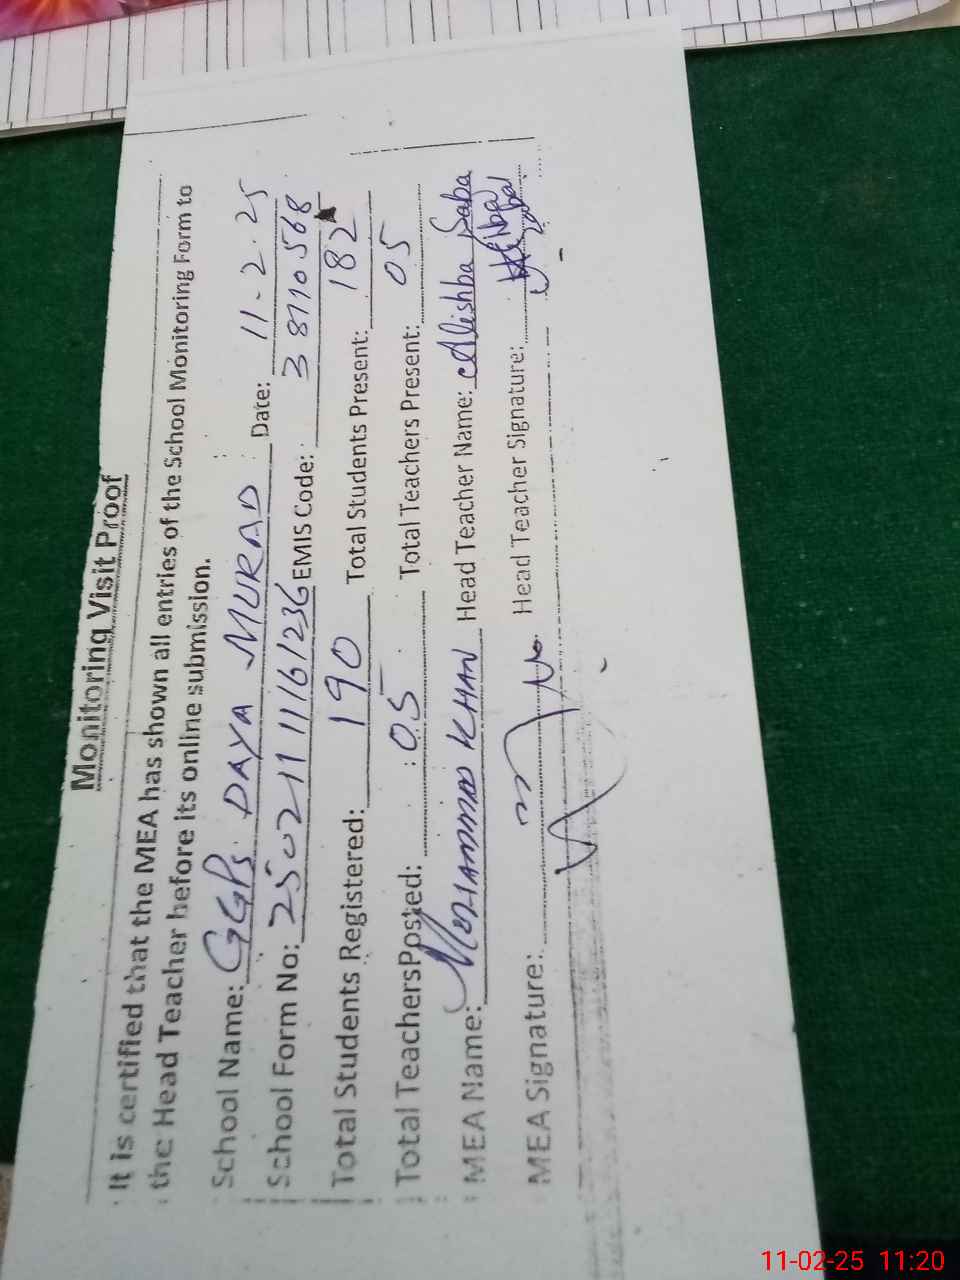 Monitoring Visit Proof
It is certified that the MEA has shown all entries of the School Monitoring Form to
the Head Teacher before its online submission.
School Name: GGPS. DAYA MURAD Date: 11-2-25
School Form No: 25021111161236 EMIS Code: 38110568
Total Students Registered: 190 Total Students Present: 182
Total TeachersPosted: 05 Total Teachers Present: 05
MEA Name: MOHAMMAD KHAN Head Teacher Name: Alishba Saba
MEA Signature: Head Teacher Signature: Alishba Saba
11-02-25 11:20